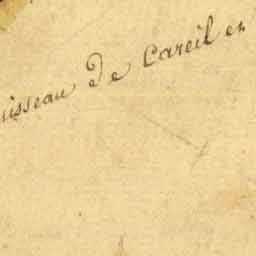 uisseau de Careil en